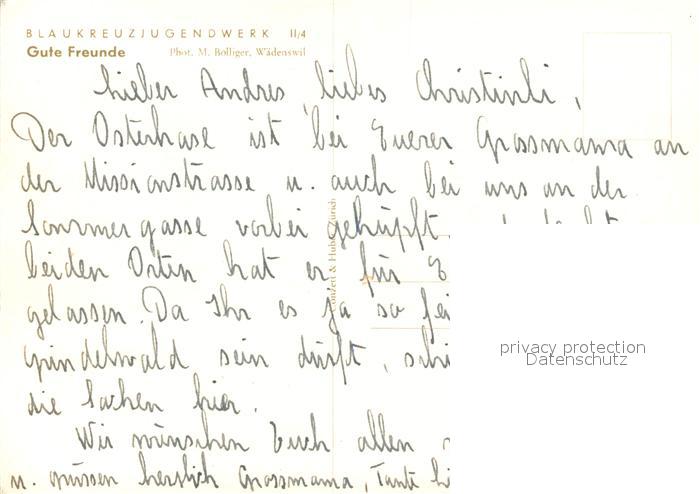 BLAUKREUZJUGENDWERK II/4
Gute Freunde Phot. M. Bolliger, Wädenswil
Lieber Andres, liebes Christinli,
Der Osterhase ist bei Euerer Grossmama an
der Missionstrasse u. auch bei uns an der
Sommergasse vorbei gehüpft
beiden Orten hat er für E
gelassen. Da Ihr es ja so fei
Grindelwald sein dürft,
die Sachen hier.
Wir wünschen Euch allen
u. grüssen herzlich Grossmama, Tante
Conzett & Huber Zürich
privacy protection
Datenschutz